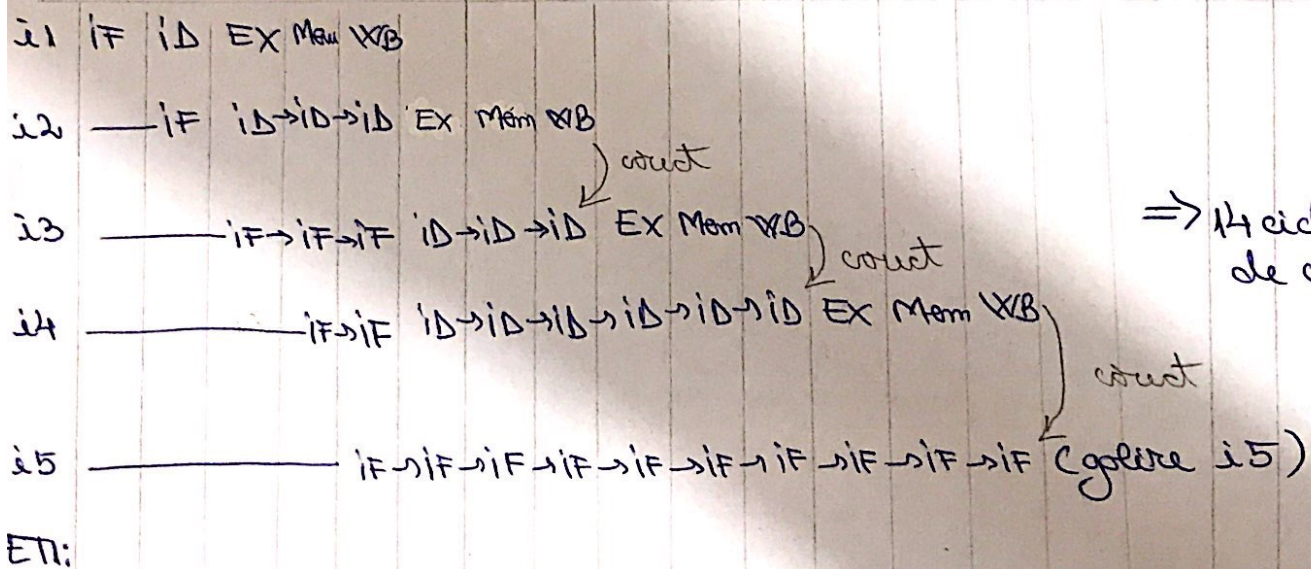 i1 iF iD EX Mem WB
i2 iF iD→iD→iD EX Mem WB
corect
i3 iF→iF→iF iD→iD→iD EX Mem WB
corect
⇒ 14 cicl
de c
i4 iF→iF iD→iD→iD→iD→iD→iD EX Mem WB
corect
i5 iF→iF→iF→iF→iF→iF→iF→iF→iF→iF (golire i5)